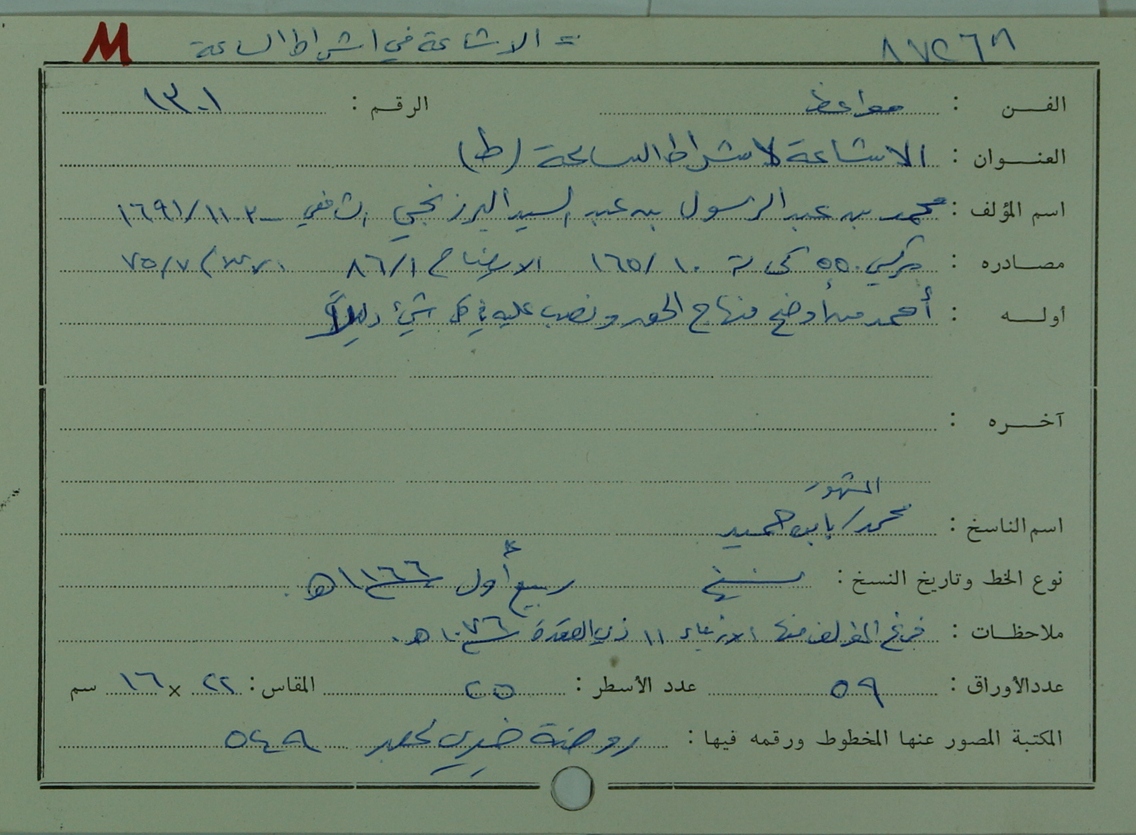 M = الاشاعة في اشراط الساعة ٨٧٢٦٨
الفن : مواعظ الرقم : ١٣٠١
العنوان : الاشاعة لاشراط الساعة (ط)
اسم المؤلف : محمد بن عبد الرسول بن عبد السيد البرزنجي الشافعي - ١١٠٣/١٦٩١
مصادره : سركيس ٥٥٠ كحالة ١٦٥/١٠ الايضاح ٨٦/١ ٧٥/٧
اوله : أحمد من أوضح منهاج الحق ونصب عليه في كل شيء دليلاً
آخره :
المشهور
اسم الناسخ : محمد / بابن حميد
نوع الخط وتاريخ النسخ : نسخ ربيع أول ١١٦٦ هـ
ملاحظات : فرغ المؤلف منها الاربعاء ١١ ذي القعدة ١٠٧٦ هـ
عدد الأوراق : ٥٩ عدد الأسطر : ٢٥ المقاس : ٢٢ × ١٦ سم
المكتبة المصور عنها المخطوط ورقمه فيها : روضة خيري ٥٤٩